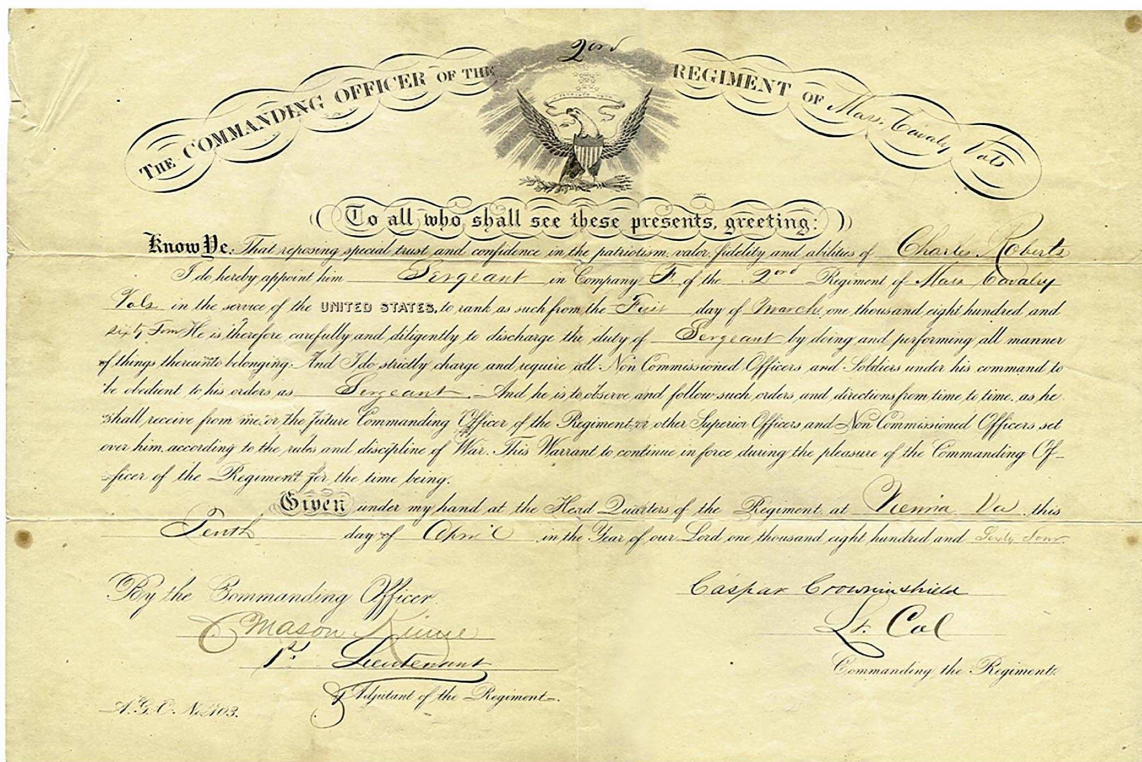 2nd
THE COMMANDING OFFICER OF THE REGIMENT OF Mass. Cavalry Vols
To all who shall see these presents, greeting:
Know Ye: That reposing special trust and confidence in the patriotism, valor, fidelity and abilities of Charles Roberts
I do hereby appoint him Sergeant in Company F of the 2nd Regiment of Mass Cavalry
Vols in the service of the UNITED STATES, to rank as such from the First day of March, one thousand eight hundred and
sixty four He is therefore carefully and diligently to discharge the duty of Sergeant by doing and performing all manner
of things thereunto belonging. And I do strictly charge and require all Non Commissioned Officers and Soldiers under his command to
be obedient to his orders as Sergeant. And he is to observe and follow such orders and directions from time to time, as he
shall receive from me, or the future Commanding Officer of the Regiment, or other Superior Officers and Non Commissioned Officers set
over him, according to the rules and discipline of War. This Warrant to continue in force during the pleasure of the Commanding Of-
ficer of the Regiment for the time being.
Given under my hand at the Head Quarters of the Regiment at Vienna Va this
Tenth day of April in the Year of our Lord one thousand eight hundred and Sixty four
By the Commanding Officer.
C Mason Kinne
1st Lieutenant
Adjutant of the Regiment.
A.G.O. No. 103.
Caspar Crowninshield
Lt. Col
Commanding the Regiment.